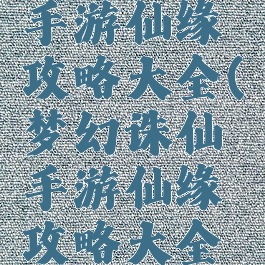 手游仙缘
攻略大全(
梦幻诛仙
手游仙缘
攻略大全